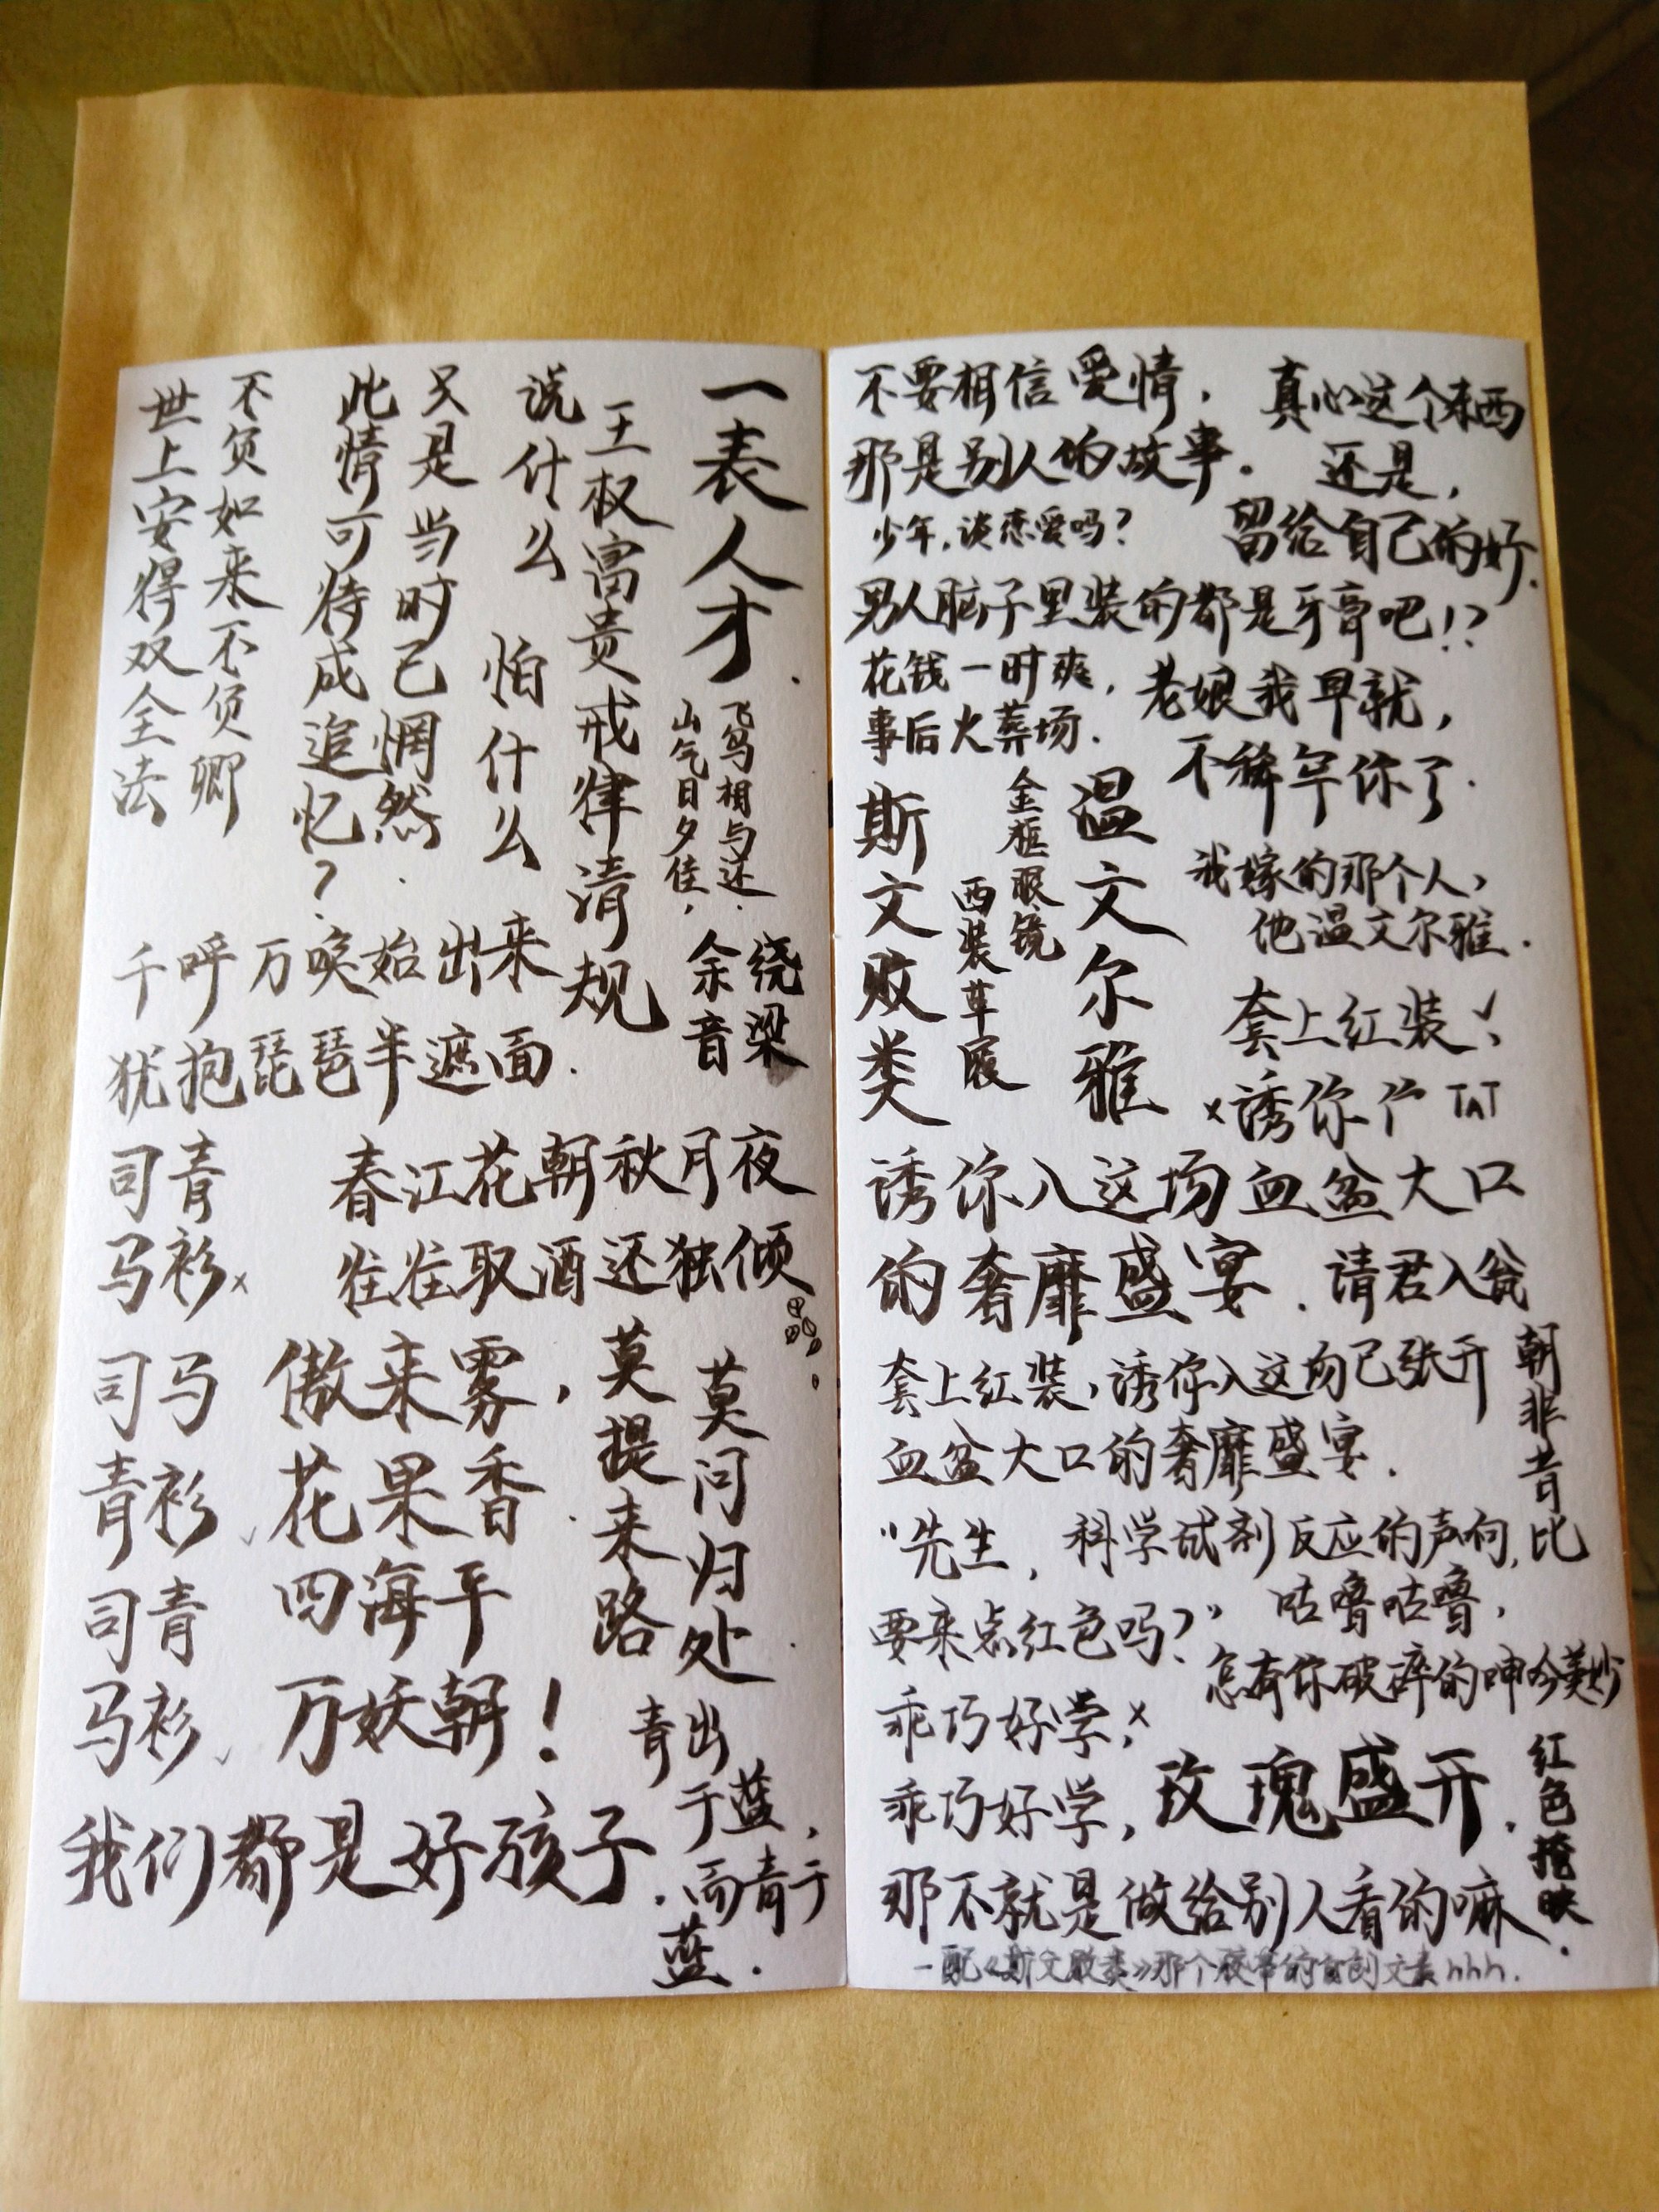 一表人才.
飞鸟相与还.
山气日夕佳,
余音
绕梁
王权富贵戒律清规
说什么
怕什么
只是当时已惘然.
此情可待成追忆?
不负如来不负卿
世上安得双全法
千呼万唤始出来
犹抱琵琶半遮面.
司青
马衫x
春江花朝秋月夜
往往取酒还独倾
司马
青衫
司青
马衫
傲来雾,
花果香.
四海平
万妖朝!
莫提来路
莫问归处.
青出
于蓝,
而青于
蓝.
我们都是好孩子.
不要相信爱情,
那是别人的故事。
真心这个东西
还是,
留给自己的好.
少年,谈恋爱吗?
男人脑子里装的都是牙膏吧!?
花钱一时爽,
事后火葬场.
老娘我早就,
不稀罕你了.
斯文败类
西装革履
金框眼镜
温文尔雅
我嫁的那个人,
他温文尔雅.
套上红装,
x诱你个TAT
诱你入这场血盆大口
的奢靡盛宴.
请君入瓮
套上红装,诱你入这场已张开
血盆大口的奢靡盛宴.
朝非昔比
"先生,
要来点红色吗?"
科学试剂反应的声响,
咕噜咕噜,
怎有你破碎的呻吟美妙
乖巧好学,x
乖巧好学,
玫瑰盛开.
红色掩映.
那不就是做给别人看的嘛
一配《斯文败类》那个胶带的自创文素hhh.